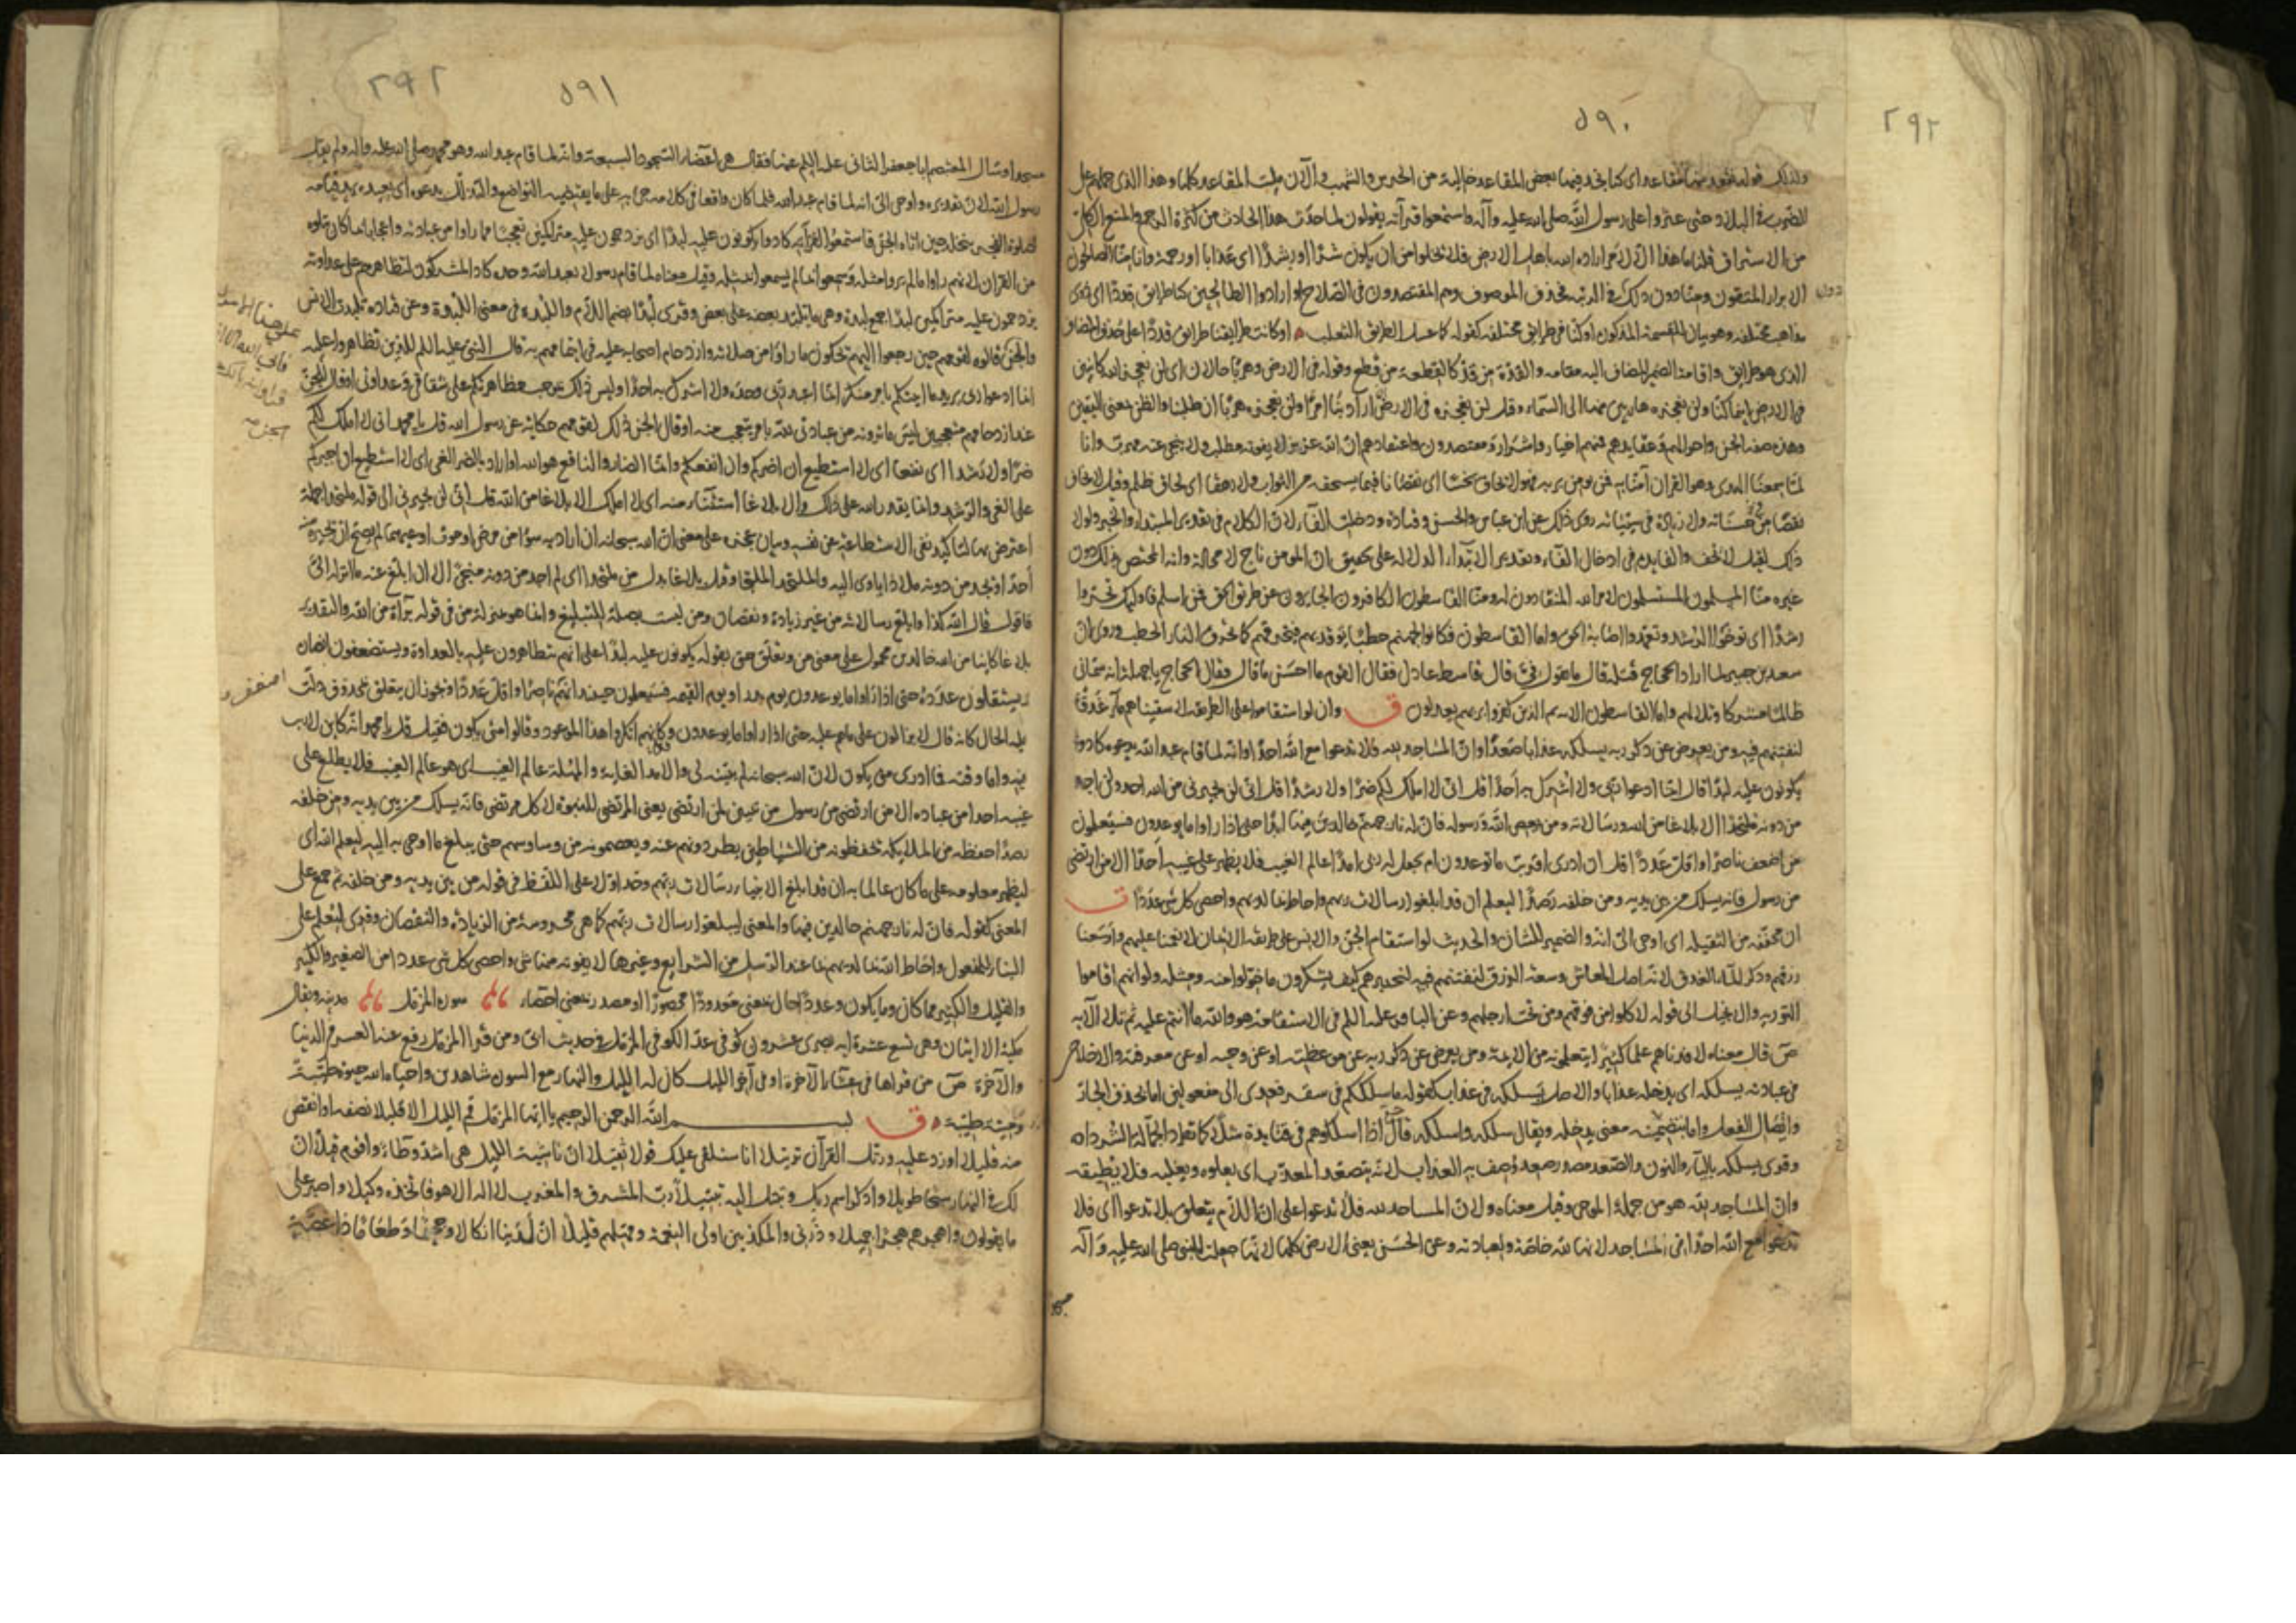 ٢٩٢
٥٩٠
وكذلك قوله نقعد منها مقاعد اى كنا نجد فيها بعض المقاعد خالية من الحرس والشهب والآن ملئت المقاعد كلها وهذا الذى حملهم على
الضرب فى البلاد حتى عثروا على رسول الله صلى الله عليه وآله واستمعوا قرآنه يقولون لما حدث هذا الحادث من كثرة الرجم والمنع الكلى
من الاستراق قلنا ما هذا الا لامر اراده الله باهل الارض فلا يخلوا من ان يكون شرا او رشدا اى عذابا او رحمة وانا منا الصالحون
الابرار المتقون ومنا دون ذلك فحذف الموصوف وهم المقتصدون فى الصلاح او ارادوا الطالحين كنا طرائق قددا اى ذوى
مذاهب مختلفة وهو بيان للقسمة المذكورة او كنا فى طرائق مختلفة كقوله كما عسل الطريق الثعلب او كانت طرايقنا طرائق قددا على حذف المضاف
الذى هو طرائق واقامة الضمير المضاف اليه مقامه والقدة من قد كالقطعة من قطع وقوله فى الارض وهربا حالان اى لن نعجز الله كائنين
فى الارض اينما كنا ولن نعجزه هاربين منها الى السماء وقيل لن نعجزه فى الارض ان اراد بنا امرا ولن نعجزه هربا ان طلبنا والظن بمعنى اليقين
وهذه صفة الجن واحوالهم وعقايدهم فمنهم اخيار واشرار ومقتصدون واعتقادهم ان الله عزيز لا يفوته مطلب ولا ينجى عنه مهرب وانا
لما سمعنا الهدى وهو القرآن آمنا به فمن يؤمن بربه فهو لا يخاف بخسا اى نقصانا فيما يستحقه من الثواب ولا رهقا اى لحاق ظلم وقيل لا يخاف
نقصا من حسناته ولا زيادة فى سيئاته روى ذلك عن ابن عباس والحسن وقتادة ودخلت الفاء لان الكلام فى تقدير المبتداء والخبر ولولا
ذلك لقيل لا يخف والفايدة فى ادخال الفاء وتقدير الابتداء الدلالة على تحقيق ان المؤمن ناج لا محالة وانه المختص بذلك دون
غيره منا المسلمون المستسلمون لامر الله المنقادون له ومنا القاسطون الكافرون الجايرون عن طريق الحق فمن اسلم فاولئك تحروا
رشدا اى توخوا الرشد وتعمدوا اصابة الحق واما القاسطون فكانوا لجهنم حطبا يوقد بهم فيحرقهم كما تحرق النار الحطب وروى ان
سعيد بن جبير لما اراد الحجاج قتله قال ما تقول فى قال قاسط عادل فقال القوم ما احسن ما قال فقال الحجاج يا جهلة انه سمانى
ظالما مشركا وتلا لهم واما القاسطون الاية ثم الذين كفروا بربهم يعدلون ق وان لو استقاموا على الطريقة لاسقيناهم ماء غدقا
لنفتنهم فيه ومن يعرض عن ذكر ربه يسلكه عذابا صعدا وان المساجد لله فلا تدعوا مع الله احدا وانه لما قام عبد الله يدعوه كادوا
يكونون عليه لبدا قال انما ادعوا ربى ولا اشرك به احدا قل انى لا املك لكم ضرا ولا رشدا قل انى لن يجيرنى من الله احد ولن اجد
من دونه ملتحدا الا بلاغا من الله ورسالاته ومن يعص الله ورسوله فان له نار جهنم خالدين فيها ابدا حتى اذا راوا ما يوعدون فسيعلمون
من اضعف ناصرا واقل عددا قل ان ادرى اقريب ما توعدون ام يجعل له ربى امدا عالم الغيب فلا يظهر على غيبه احدا الا من ارتضى
من رسول فانه يسلك من بين يديه ومن خلفه رصدا ليعلم ان قد ابلغوا رسالات ربهم واحاط بما لديهم واحصى كل شئ عددا ت
ان مخففة من الثقيلة اى اوحى الى انه والضمير للشان والحديث لو استقام الجن والانس على طريقة الايمان لانعمنا عليهم واوسعنا
رزقهم وذكر الماء الغدق لانه اصل المعاش وسعة الرزق لنفتنهم فيه لنختبرهم كيف يشكرون ما خولوا منه ومثله ولو انهم اقاموا
التورية والانجيل الى قوله لاكلوا من فوقهم ومن تحت ارجلهم وعن الباقر عليه السلم فى الاستقامة هو والله ما انتم عليه ثم تلا الآية
ص قال معناه لافدناهم علما كثيرا يتعلمونه من الايمة ومن يعرض عن ذكر ربه عن موعظته او عن وحيه او عن معرفته والاخلاص
فى عبادته يسلكه اى يدخله عذابا والاصل يسلكه فى عذاب كقوله ما سلككم فى سقر فعدى الى مفعولين اما بحذف الجار
وايصال الفعل واما بتضمينه معنى يدخله ويقال سلكه واسلكه قال حتى اذا اسلكوهم فى قتايدة شلا كما تطرد الجمالة الشردا
وقرى يسلكه بالياء والنون والصعد مصدر صعد وصف به العذاب لانه يتصعد المعذب اى يعلوه ويغلبه فلا يطيقه
وان المساجد لله هو من جملة الموحى وقيل معناه ولان المساجد لله فلا تدعوا على ان اللام يتعلق بلا تدعوا اى فلا
تدعوا مع الله احدا فى المساجد لانها لله خاصة ولعبادته وعن الحسن يعنى الارض كلها لانها جعلت للنبى صلى الله عليه وآله
٢٩٢
٥٩١
مسجدا وسال المعتصم ابا جعفر الثانى عليه السلم عنها فقال هى اعضاء السجود السبعة وانه لما قام عبد الله وهو محمد صلى الله عليه وآله ولم يقل
رسول الله لان تقديره واوحى الى انه لما قام عبد الله فلما كان واقعا فى كلامه جئ به على ما يقتضيه التواضع والتذلل يدعوه اى يعبده يريد قيامه
لصلوة الفجر بنخلة حين اتاه الجن فاستمعوا القراءته كادوا يكونون عليه لبدا اى يزدحمون عليه متراكمين تعجبا مما راوا من عبادته واعجابا بما كان يتلوه
من القران لانهم راوا ما لم يروا مثله وسمعوا ما لم يسمعوا بمثله وقيل معناه لما قام رسول يعبد الله وحده كاد المشركون لتظاهرهم على عداوته
يزدحمون عليه متراكمين لبدا جمع لبدة وهى ما تلبد بعضه على بعض وقرى لبدا بضم اللام واللبدة فى معنى اللبدة وعن قتادة تلبدت الانس
والجن قالوه لقومهم حين رجعوا اليهم يحكون ما راوا من صلاته وازدحام اصحابه عليه فى ايتمامهم به قال النبى عليه السلم للذين تظاهروا عليه
انما ادعوا ربى يريد ما اتيتكم بامر منكر انما اعبد ربى وحده ولا اشرك به احدا وليس ذلك مما يوجب تظاهركم على شقاقى وعداوتى او قال للجن
عند ازدحامهم متعجبين ليس ما ترونه من عبادتى لله بامر يتعجب منه او قال الجن ذلك لقومهم حكاية عن رسول الله قل يا محمد انى لا املك لكم
ضرا ولا رشدا اى نفعا اى لا استطيع ان اضركم وان انفعكم وانما الضار والنافع هو الله او اراد بالضر الغى اى لا استطيع ان اجبركم
على الغى والرشد وانما يقدر الله على ذلك والا بلاغا استثناء منه اى لا املك الا بلاغا من الله قل انى لن يجيرنى الى قوله ملتحدا جملة
اعترض بها لتاكيد نفى الاستطاعة عن نفسه وبيان عجزه على معنى ان الله سبحانه ان اراد به سوءا من مرض او موت او غيرهما لم يصح ان يجيره
احد او يجد من دونه ملاذا ياوى اليه والملتحد الملتجا وقيل بلاغا بدل من ملتحدا اى لم اجد من دونه منجى الا ان ابلغ عنه ما انزله الى
فاقول قال الله كذا وابلغ رسالاته من غير زيادة ونقصان ومن ليست بصلة للتبليغ وانما هو بمنزلة من فى قوله براءة من الله والتقدير
بلاغا كاينا من الله خالدين محمول على معنى من وتعلق حتى بقوله يكونون عليه لبدا على انهم يتظاهرون عليه بالعداوة ويستضعفون انصاره
ويستقلون عدده حتى اذا راوا ما يوعدون يوم بدر او يوم القيمة فسيعلمون حينئذ ايهم ناصرا واقل عددا ويجوز ان يتعلق بمحذوف دلت
عليه الحال كانه قال لا يزالون على ما هم عليه حتى اذا راوا ما يوعدون وكانهم انكروا هذا الموعود وقالوا متى يكون فقيل قل يا محمد انه كاين لا ريب
فيه واما وقته فما ادرى متى يكون لان الله سبحانه لم يبينه لى والامد الغاية والمهلة عالم الغيب اى هو عالم الغيب فلا يطلع على
غيبه احدا من عباده الا من ارتضى من رسول من تبيين لمن ارتضى يعنى المرتضى للنبوة لا كل مرتضى فانه يسلك من بين يديه ومن خلفه
رصدا حفظة من الملايكة تحفظونه من الشياطين يطردونهم عنه ويعصمونه من وساوسهم حتى يبلغ ما اوحى به اليه ليعلم الله اى
ليظهر معلومه على ما كان عالما به ان قد ابلغ الانبياء رسالات ربهم وحد اولا على اللفظ فى قوله من بين يديه ومن خلفه ثم جمع على
المعنى كقوله فان له نار جهنم خالدين فيها والمعنى ليبلغوا رسالات ربهم كما هى محروسة من الزيادة والنقصان وقرى ليعلم على
البناء للمفعول واحاط الله بما لديهم بما عند الرسل من الشرايع وغيرها لا يفوته منها شئ واحصى كل شئ عددا من الصغير والكبير
والقليل والكثير مما كان وما يكون وعددا حال بمعنى معدودا محصورا او مصدر بمعنى احصاء سورة المزمل مدنية ويقال
مكية الا ايتان وهى تسع عشرة اية بصرى عشرون كوفى عد الكوفى المزمل فى حديث ابى ومن قرا المزمل رفع عنه العسر فى الدنيا
والآخرة ص من قراها فى عشاء الآخرة او فى آخر الليل كان له الليل والنهار مع السورة شاهدين واحياه الله حيوة طيبة
وميتة طيبة ق بسم الله الرحمن الرحيم يا ايها المزمل قم الليل الا قليلا نصفه او انقص
منه قليلا او زد عليه ورتل القرآن ترتيلا انا سنلقى عليك قولا ثقيلا ان ناشئة الليل هى اشد وطاء واقوم قيلا ان
لك فى النهار سبحا طويلا واذكر اسم ربك وتبتل اليه تبتيلا رب المشرق والمغرب لا اله الا هو فاتخذه وكيلا واصبر على
ما يقولون واهجرهم هجرا جميلا وذرنى والمكذبين اولى النعمة ومهلهم قليلا ان لدينا انكالا وجحيما وطعاما ذا غصة